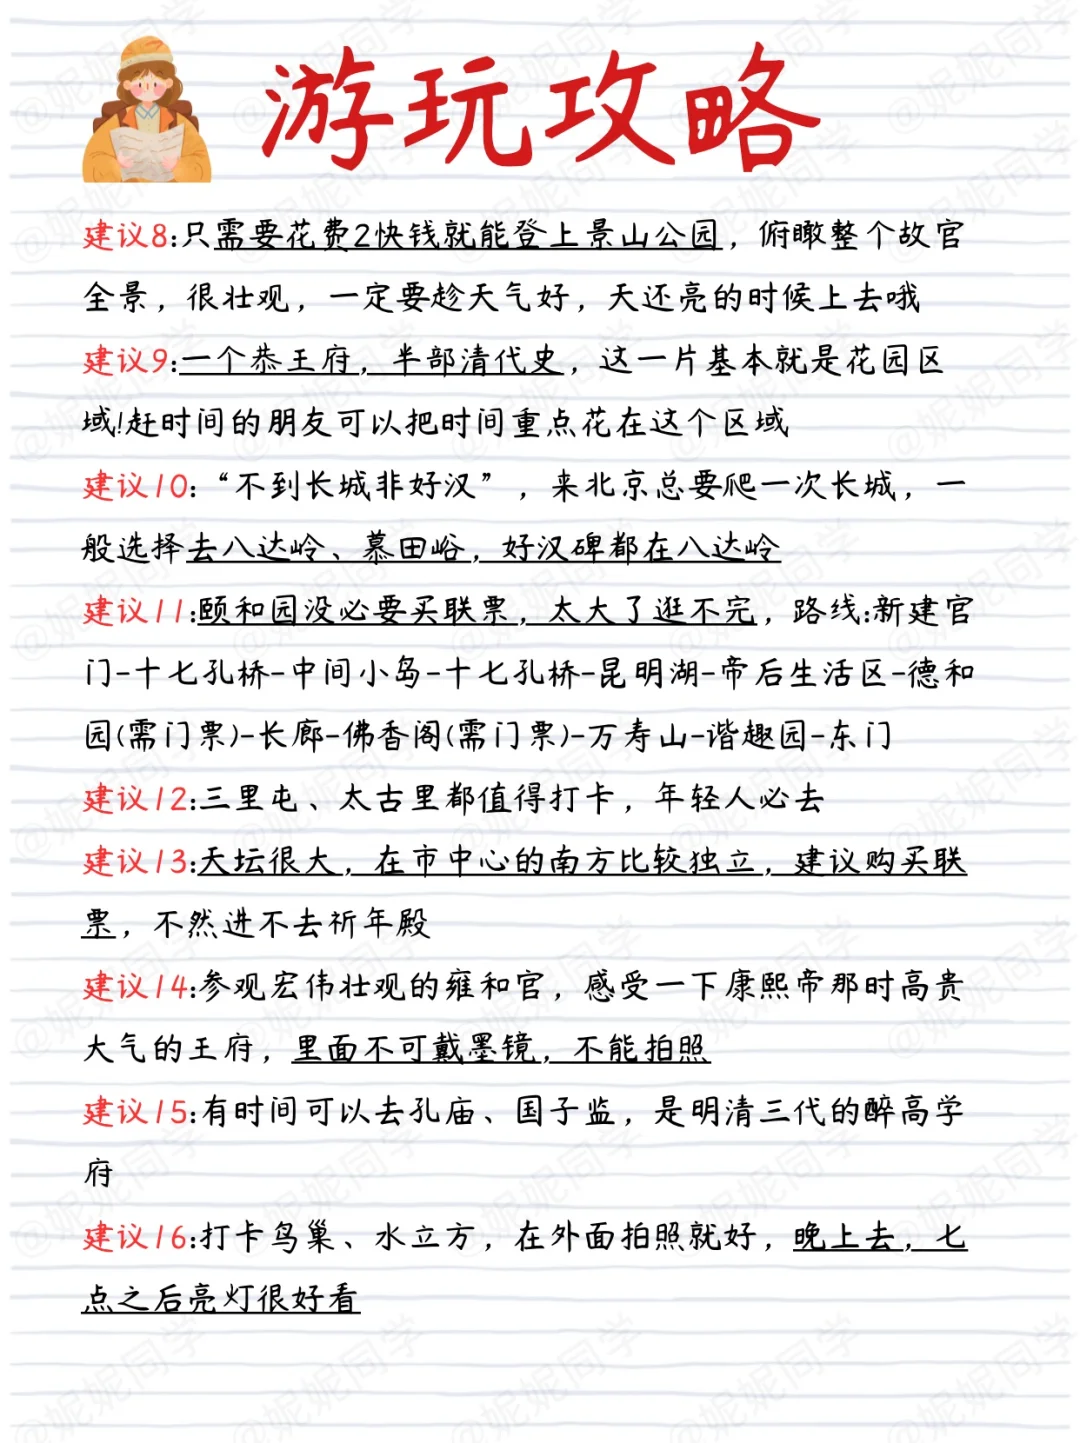 游玩攻略
建议8:只需要花费2快钱就能登上景山公园，俯瞰整个故宫
全景，很壮观，一定要趁天气好，天还亮的时候上去哦
建议9:一个恭王府，半部清代史，这一片基本就是花园区
域!赶时间的朋友可以把时间重点花在这个区域
建议10:“不到长城非好汉”，来北京总要爬一次长城，一
般选择去八达岭、慕田峪，好汉碑都在八达岭
建议11:颐和园没必要买联票，太大了逛不完，路线:新建官
门-十七孔桥-中间小岛-十七孔桥-昆明湖-帝后生活区-德和
园(需门票)-长廊-佛香阁(需门票)-万寿山-谐趣园-东门
建议12:三里屯、太古里都值得打卡，年轻人必去
建议13:天坛很大，在市中心的南方比较独立，建议购买联
票，不然进不去祈年殿
建议14:参观宏伟壮观的雍和宫，感受一下康熙帝那时高贵
大气的王府，里面不可戴墨镜，不能拍照
建议15:有时间可以去孔庙、国子监，是明清三代的醉高学
府
建议16:打卡鸟巢、水立方，在外面拍照就好，晚上去，七
点之后亮灯很好看
@妮妮同学